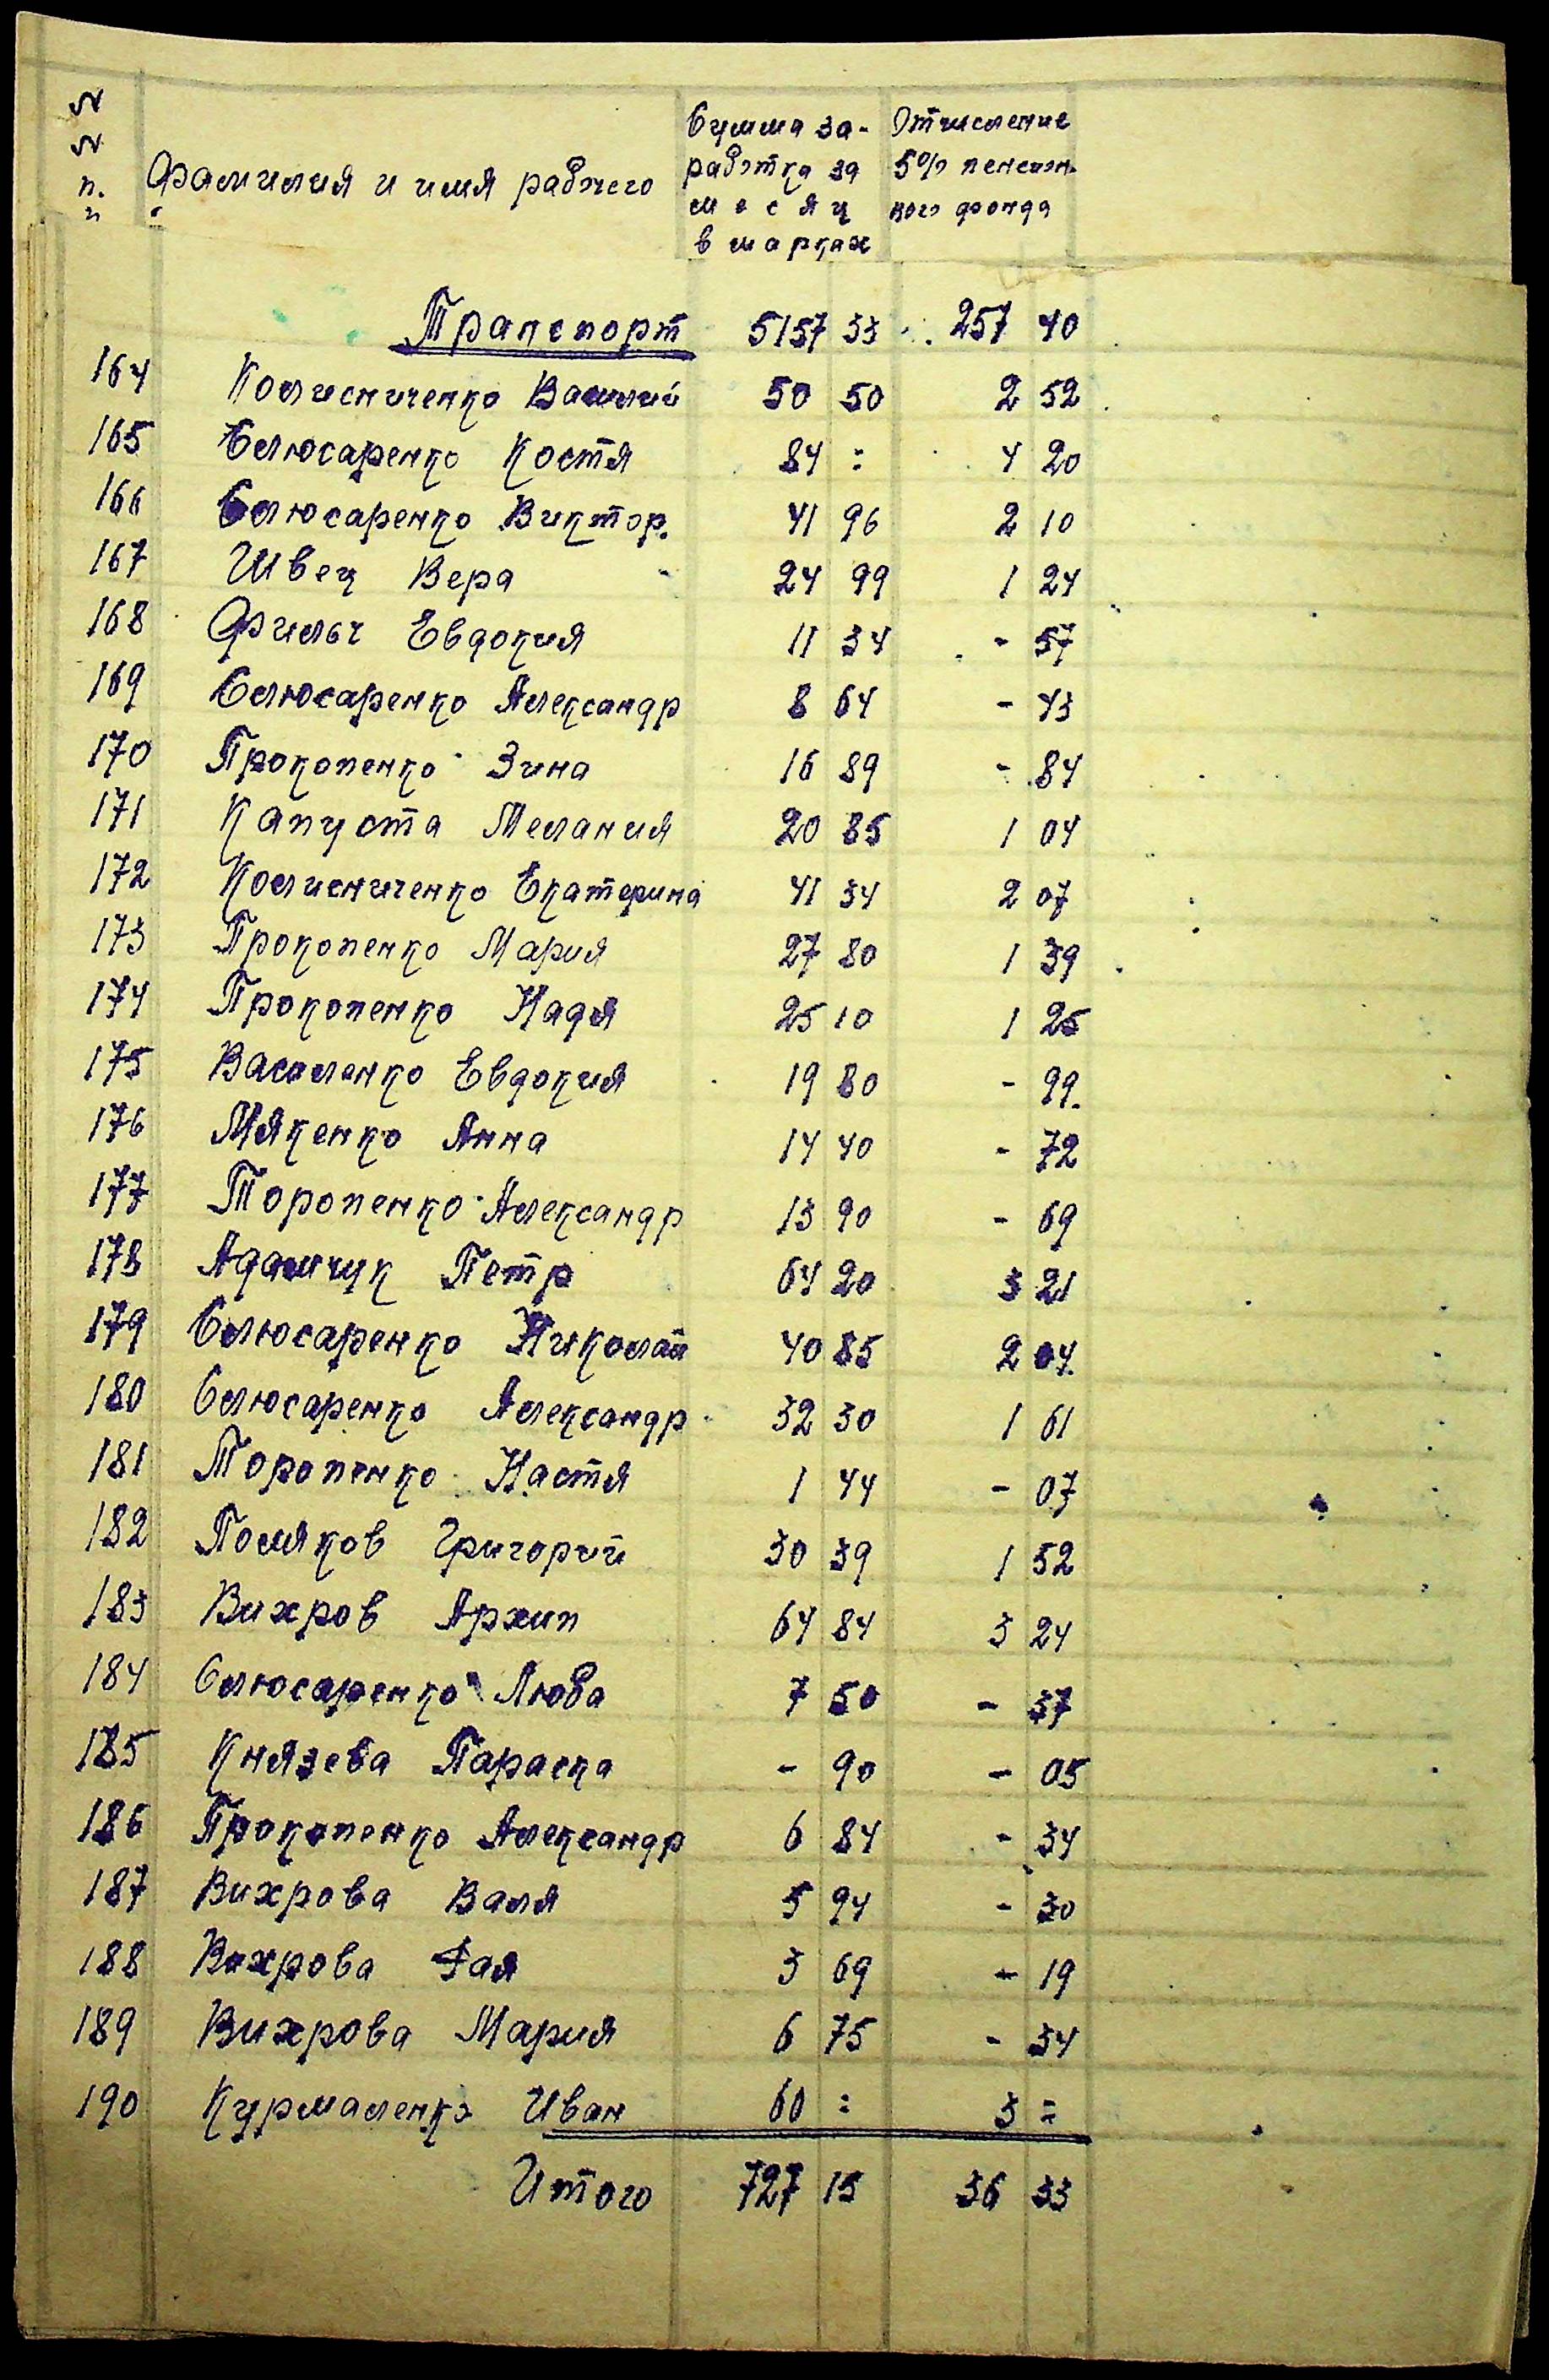 №№ п.п
Фамилия и имя рабочего
Сумма за-
работка за
месяц
в марках
Отчисление
5% пенсион-
ного фонда
Транспорт 5157 33 257 40
164 Колисниченко Василий 50 50 2 52
165 Слюсаренко Костя 84 = 4 20
166 Слюсаренко Виктор. 41 96 2 10
167 Швец Вера 24 99 1 24
168 Фильч Евдокия 11 34 - 57
169 Слюсаренко Александр 8 64 - 43
170 Прокопенко Зина 16 89 - 84
171 Капуста Мелания 20 85 1 04
172 Колисниченко Екатерина 41 34 2 07
173 Прокопенко Мария 27 80 1 39
174 Прокопенко Надя 25 10 1 25
175 Василенко Евдокия 19 80 - 99
176 Мякенко Анна 14 40 - 72
177 Торопенко Александр 13 90 - 69
178 Адамчук Петр 64 20 3 21
179 Слюсаренко Николай 40 85 2 04
180 Слюсаренко Александр 32 30 1 61
181 Торопенко Настя 1 44 - 07
182 Поляков Григорий 30 39 1 52
183 Вихров Архип 64 84 3 24
184 Слюсаренко Люба 7 50 - 37
185 Князева Параска - 90 - 05
186 Прокопенко Александр 6 84 - 34
187 Вихрова Валя 5 94 - 30
188 Вихрова Фая 3 69 - 19
189 Вихрова Мария 6 75 - 34
190 Курмаленко Иван 60 = 3 =
Итого 727 15 36 33